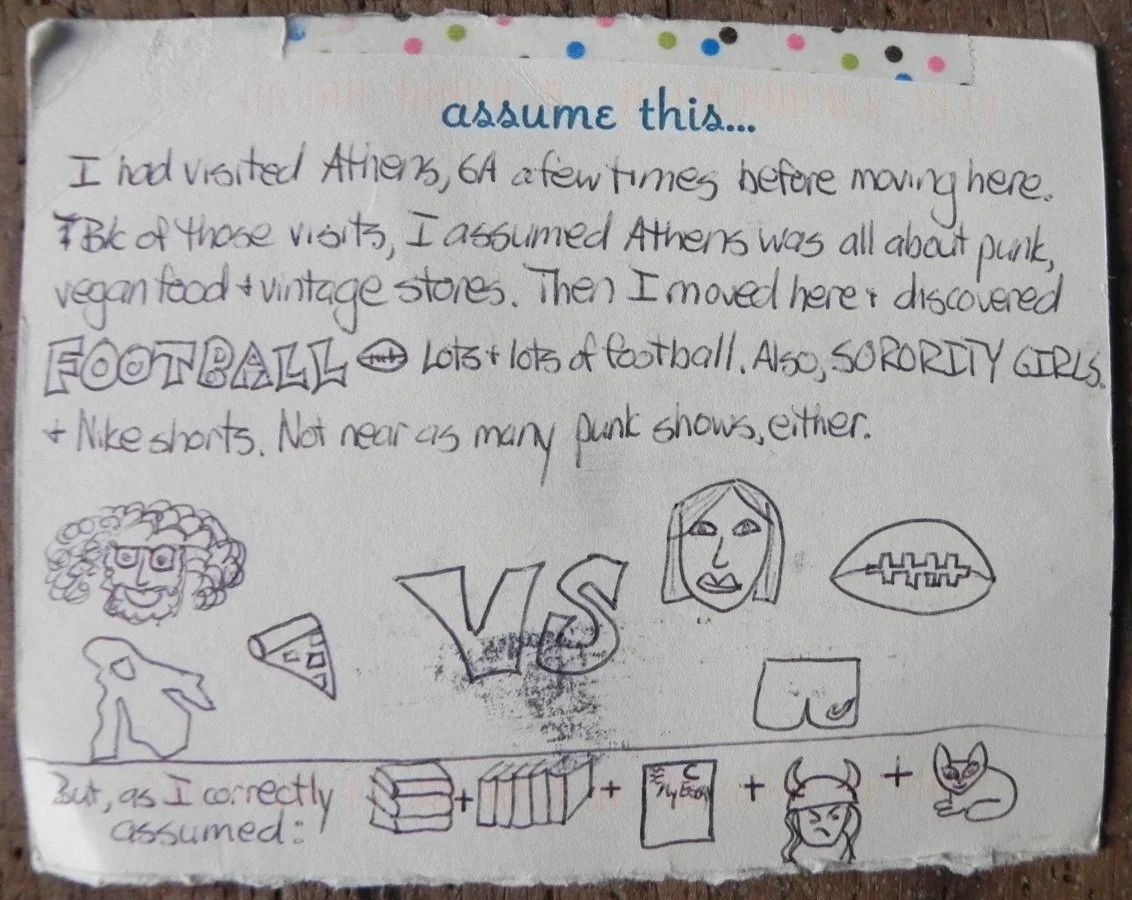 assume this...
I had visited Athens, GA a few times before moving here.
B/c of those visits, I assumed Athens was all about punk,
vegan food + vintage stores. Then I moved here + discovered
FOOTBALL Lots + lots of football. Also, SORORITY GIRLS.
+ Nike shorts. Not near as many punk shows, either.
VS
But, as I correctly
assumed:
+ + + +